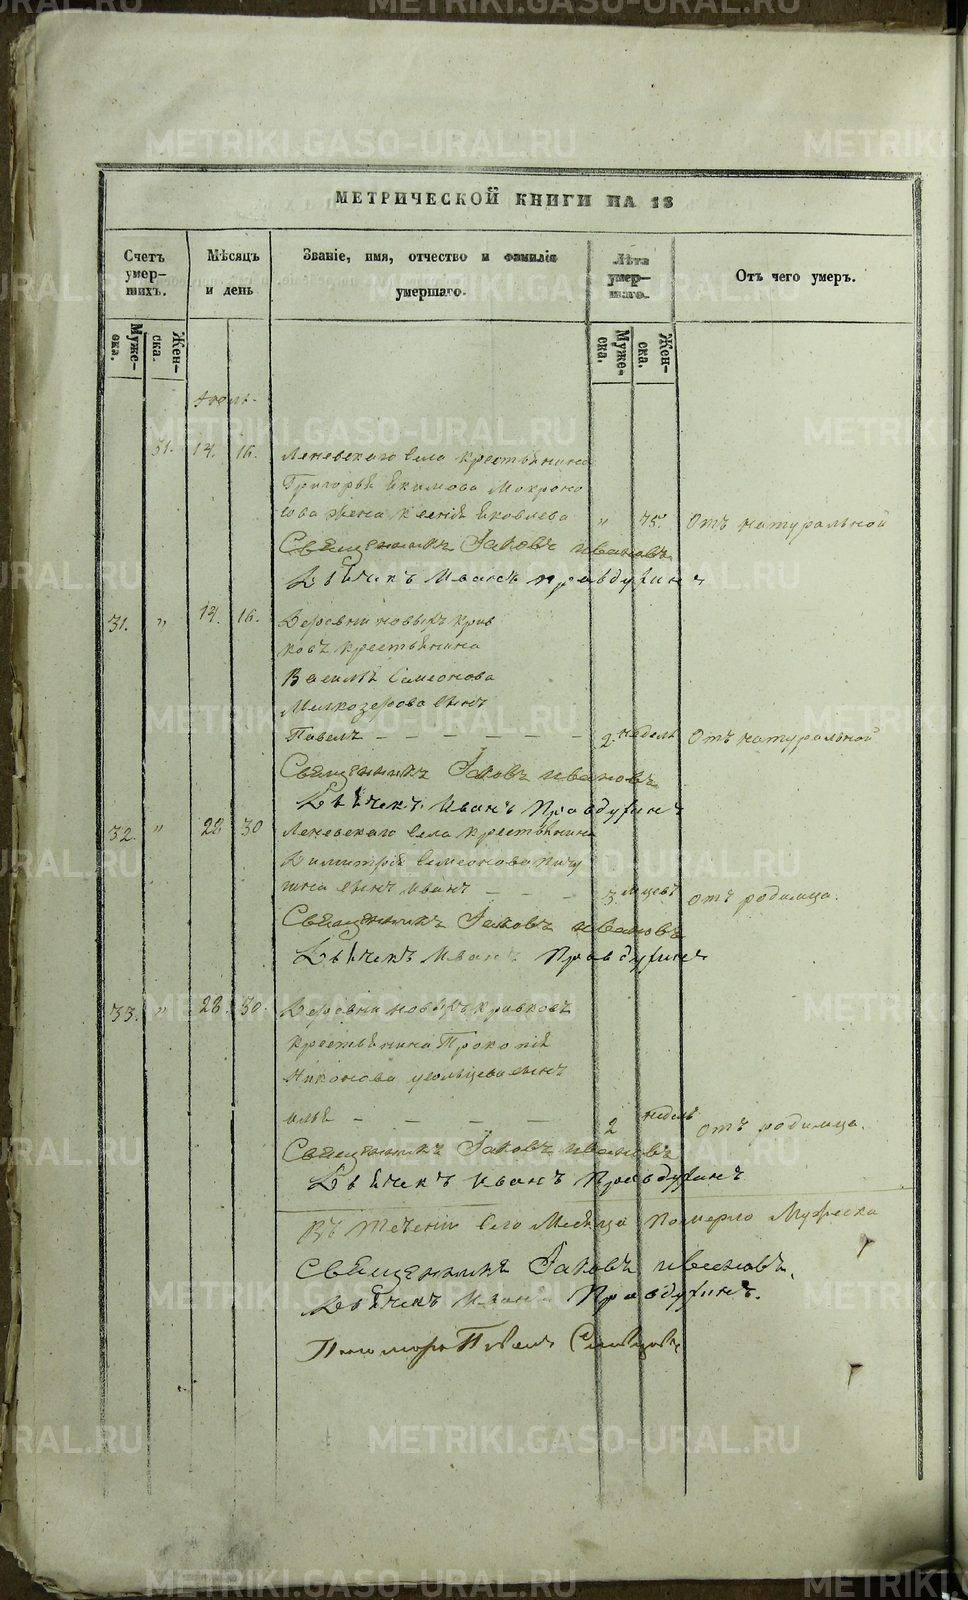 МЕТРИЧЕСКОЙ КНИГИ НА 18
Счетъ умер-шихъ.
Мѣсяцъ и день
Званіе, имя, отчество и фамилія умершаго.
Лѣта умер-шаго.
Отъ чего умеръ.
Муже-ска.
Жен-ска.
Муже-ска.
Жен-ска.
Июль.
51. 14. 16. Леневскаго Села крестьянина
Григорья Екимова Мокроно
сова жена Ксенія Яковлева „ 75. Отъ натуральной
Священникъ Іаковъ Ивановъ
Дьячекъ Иванъ Правдухинъ
31. „ 14. 16. Деревни новыхъ Крив
ковъ крестьянина
Василья Симеонова
Мелкозерова сынъ
Павелъ — — — — — — 2. недель Отъ натуральной
Священникъ Іаковъ Ивановъ
Дьячекъ Иванъ Правдухинъ
32. „ 28 30 Леневскаго Села крестьянина
Димитрія Симеонова
сынъ Иванъ — — — 3. месец. отъ родимца.
Священникъ Іаковъ Ивановъ
Дьячекъ Иванъ Правдухинъ
33. „ 28. 30. Деревни новыхъ Кривковъ
крестьянина Прокопія
Никонова Усольцева сынъ
Илья — — — — — 2 недель отъ родимца.
Священникъ Іаковъ Ивановъ
Дьячекъ Иванъ Правдухинъ
Въ течении Сего Месяца Померло Мужеска
Священникъ Іаковъ Ивановъ.
Дьячекъ Иванъ Правдухинъ.
Пономарь Павелъ Словцовъ
METRIKI.GASO-URAL.RU